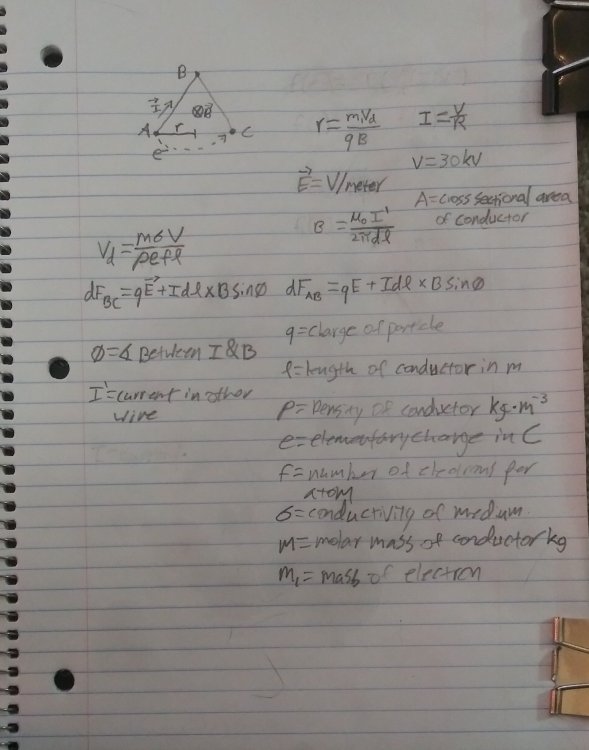 B
I⃗
⊗B⃗
A r C
e⁻
r = m₁Vd / qB
I = V/R
V = 30kV
E⃗ = V/meter
A = cross sectional area
of conductor
B = μ₀I' / 2πdl
Vd = mσV / ρefl
dF_BC = qE⃗ + Idl × B sinΦ
dF_AB = qE + Idl × B sinΦ
q = charge of particle
Φ = ∡ Between I & B
l = length of conductor in m
I' = current in other
wire
ρ = Density of conductor kg·m⁻³
e = elementary charge in C
f = number of electrons per
atom
σ = conductivity of medium
m = molar mass of conductor kg
m₁ = mass of electron